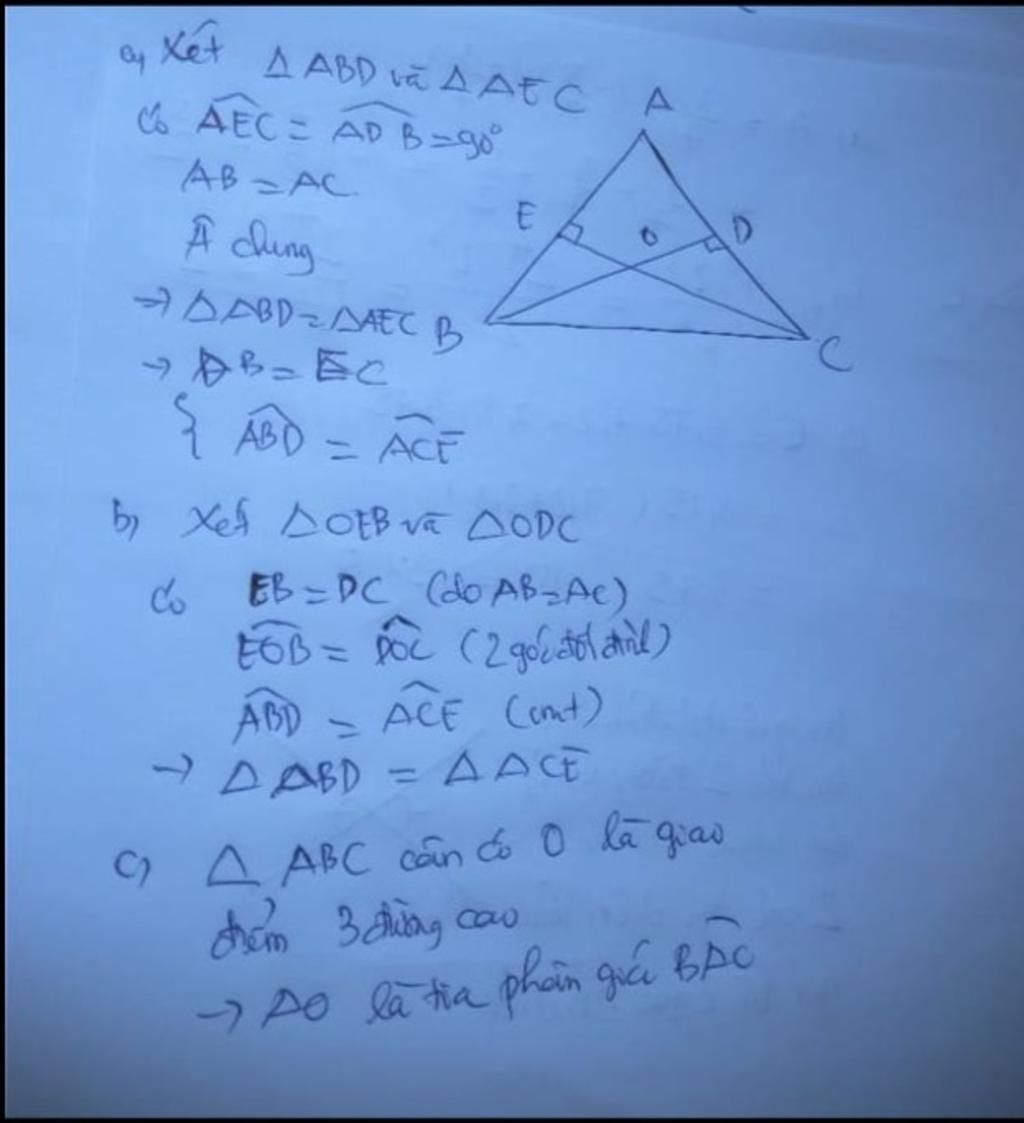 a, Xét △ABD và △AEC
có AEC = ADB = 90°
AB = AC
Â chung
→ △ABD = △AEC
→ DB = EC
{ ABD = ACE
A
E
O
D
B
C
b, Xét △OEB và △ODC
có EB = DC (do AB = AC)
EOB = DOC (2 góc đối đỉnh)
ABD = ACE (cmt)
→ △ABD = △ACE
c, △ABC cân có O là giao
điểm 3 đường cao
→ AO là tia phân giác BAC